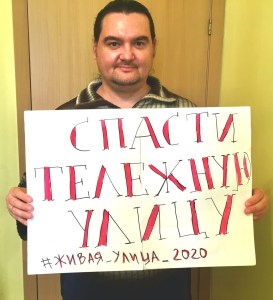 СПАСТИ
ТЕЛЕЖНУЮ
УЛИЦУ
#ЖИВАЯ_УЛИЦА_2020